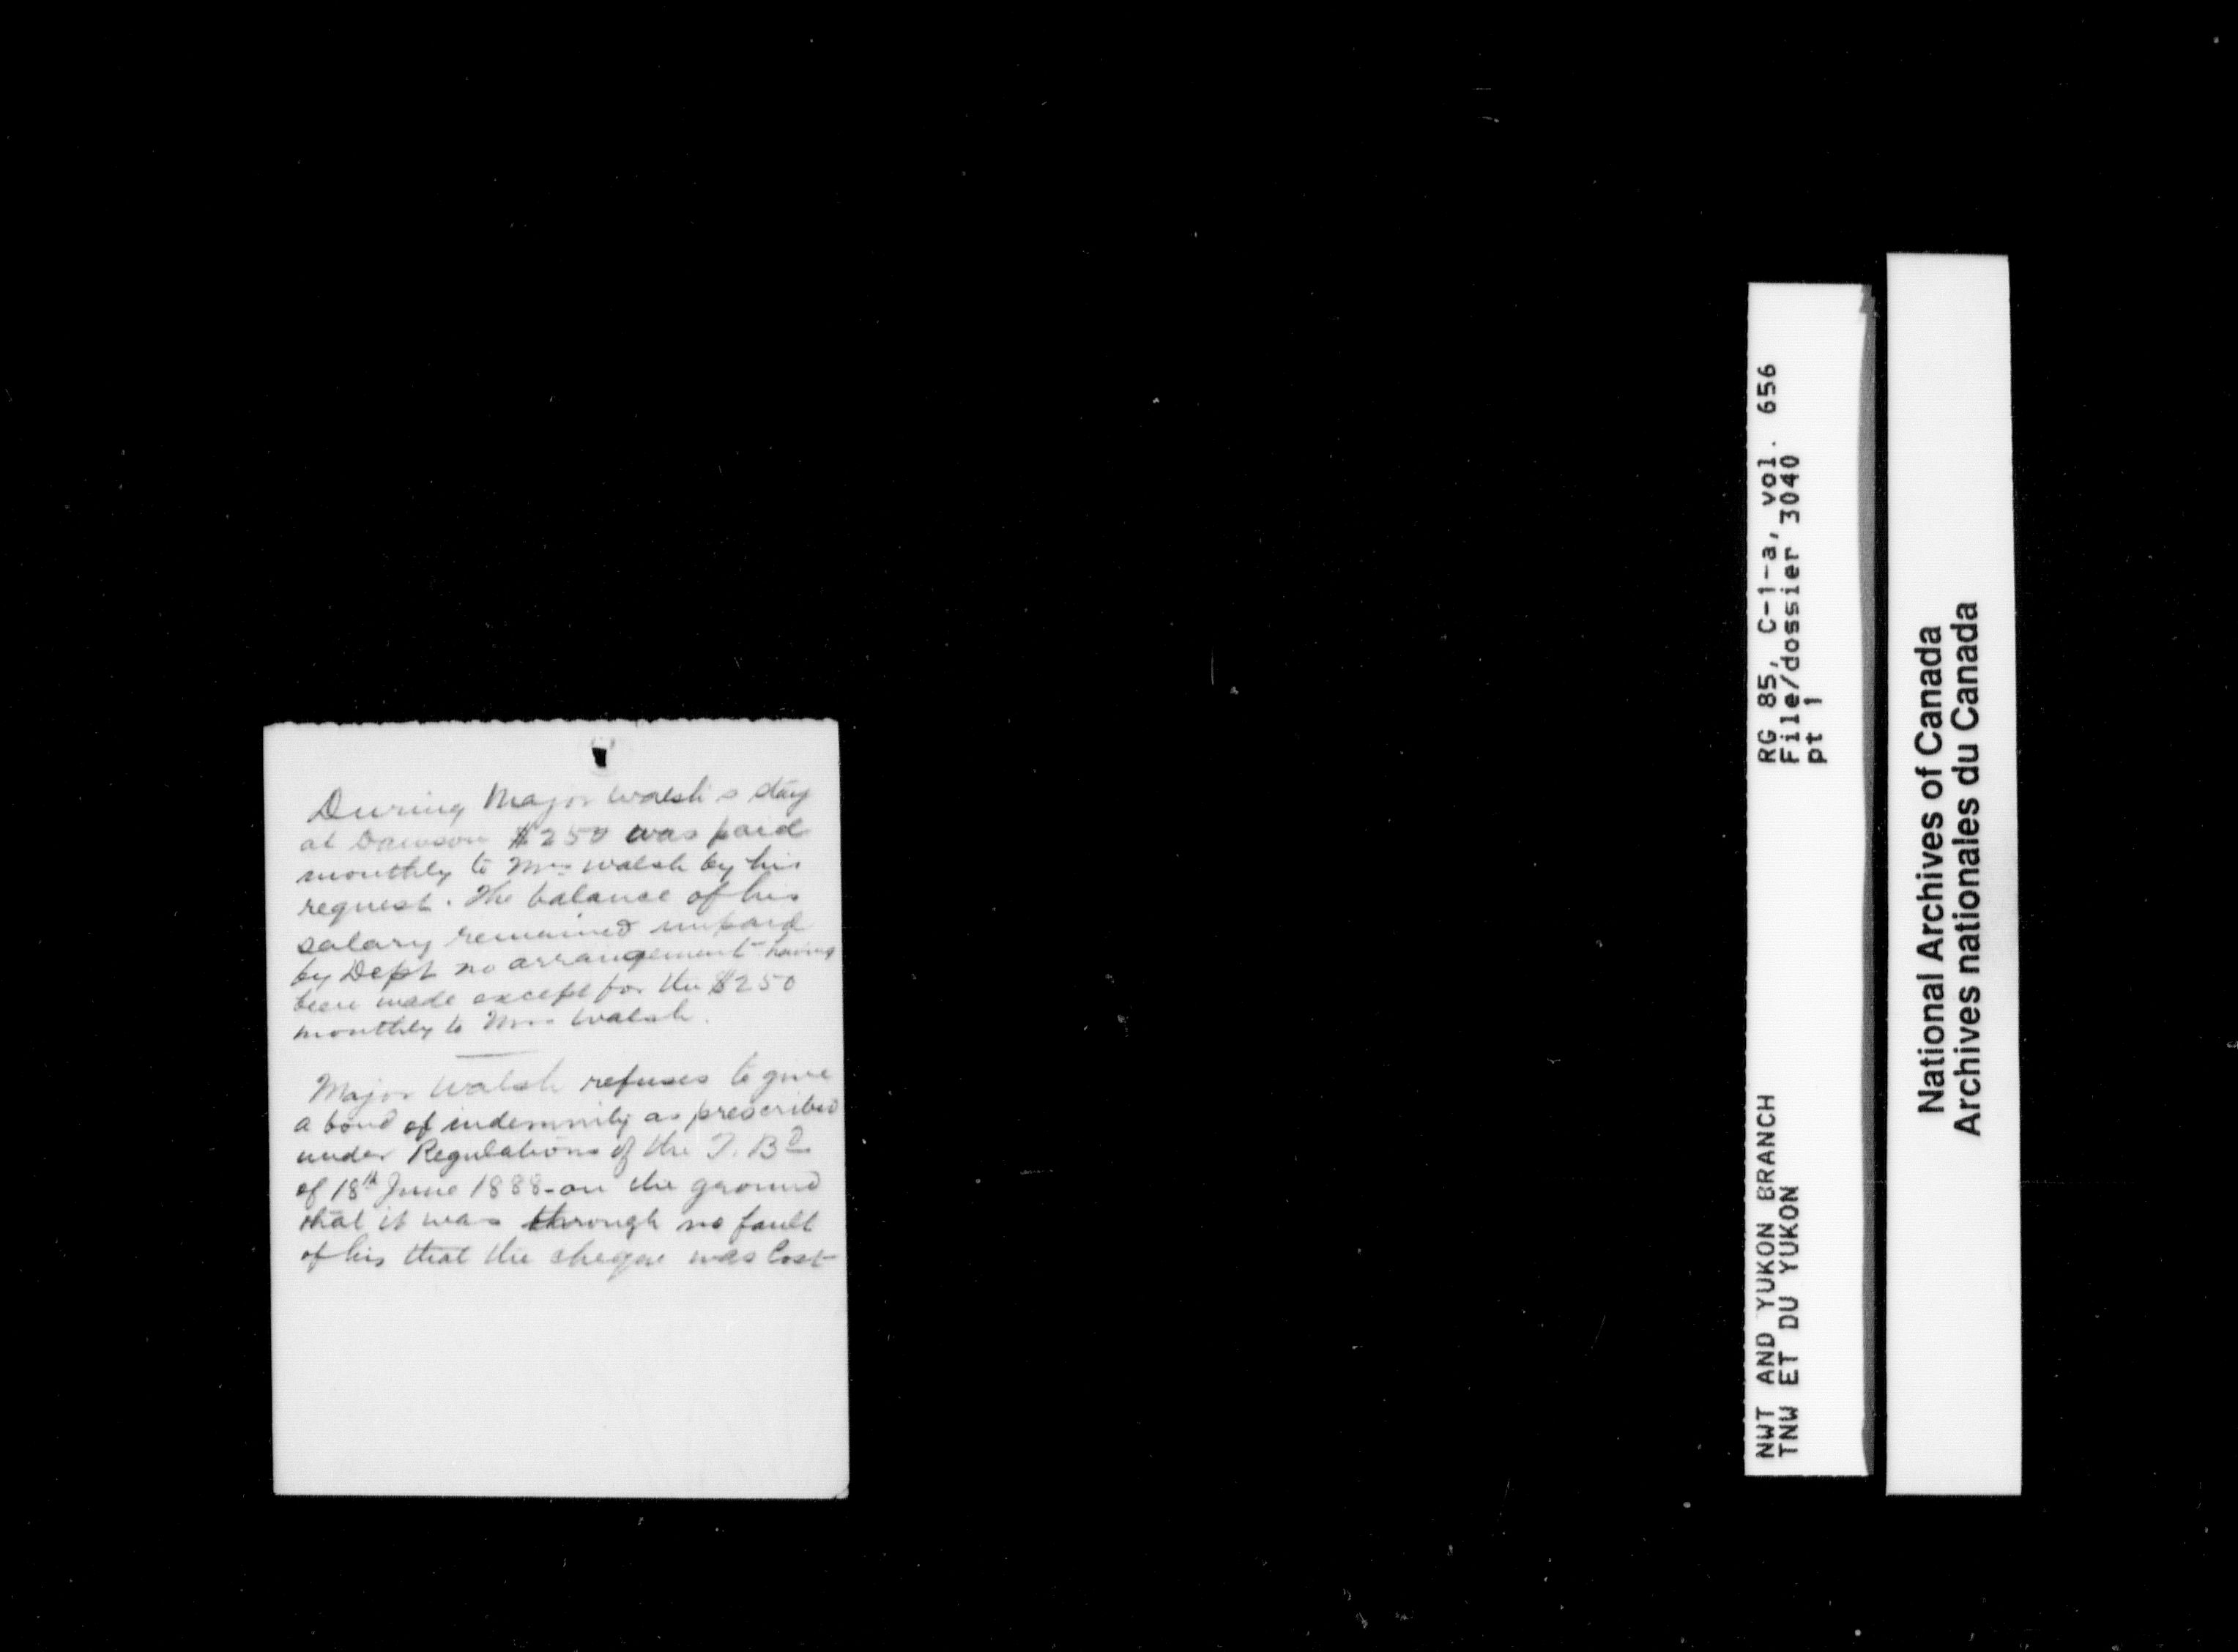 During Major Walsh's stay
at Dawson $250 was paid
monthly to Mrs Walsh by his
request. The balance of his
salary remained unpaid
by Dept no arrangement having
been made except for the $250
monthly to Mrs Walsh.
Major Walsh refuses to give
a bond of indemnity as prescribed
under Regulations of the T. Bd
of 18th June 1888 - on the ground
that it was through no fault
of his that the cheque was lost
RG 85, C-1-a, vol. 656
File/dossier 3040
pt 1
NWT AND YUKON BRANCH
TNW ET DU YUKON
National Archives of Canada
Archives nationales du Canada